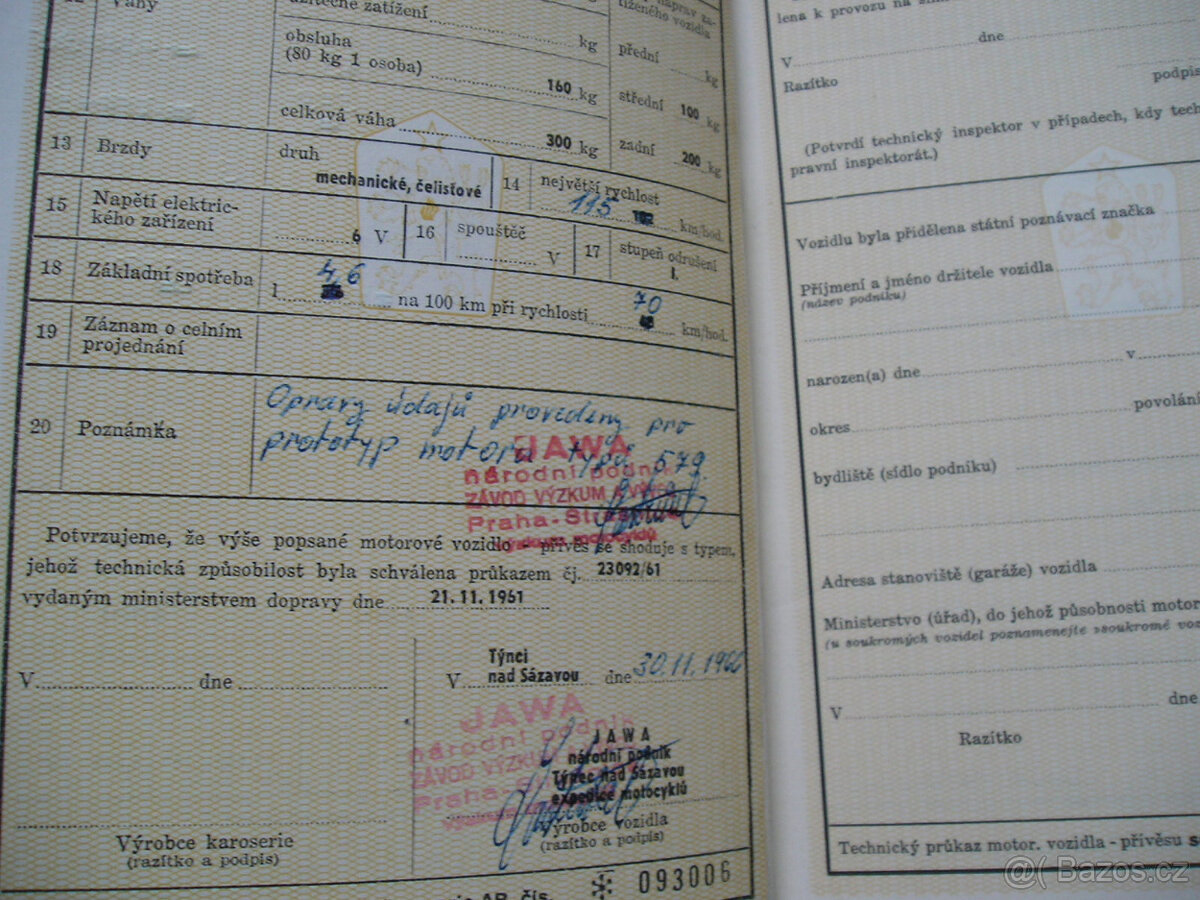 Váhy
užitečné zatížení
kg
obsluha
(80 kg 1 osoba)
160 kg
celková váha
300 kg
tíženého vozidla
přední
kg
střední 100 kg
zadní 200 kg
13 Brzdy
druh
mechanické, čelisťové
14 největší rychlost
115 km/hod.
15 Napětí elektric-
kého zařízení
6 V
16 spouštěč
V
17 stupeň odrušení
I.
18 Základní spotřeba
l 4,6 na 100 km při rychlosti 70 km/hod.
19 Záznam o celním
projednání
20 Poznámka
Opravy údajů provedeny pro
prototyp motoru typu 579
JAWA
národní podnik
ZÁVOD VÝZKUM A
Praha-
Potvrzujeme, že výše popsané motorové vozidlo - přívěs se shoduje s typem,
jehož technická způsobilost byla schválena průkazem čj. 23092/61
vydaným ministerstvem dopravy dne 21. 11. 1961
V dne
V Týnci
nad Sázavou dne 30.11.1966
JAWA
národní podnik
ZÁVOD VÝZKUM
Praha-
JAWA
národní podnik
Týnec nad Sázavou
expedice motocyklů
Výrobce karoserie
(razítko a podpis)
Výrobce vozidla
(razítko a podpis)
AR čís. 093006
lena k provozu na
V dne
Razítko podpis
(Potvrdí technický inspektor v případech, kdy tech
pravní inspektorát.)
Vozidlu byla přidělena státní poznávací značka
Příjmení a jméno držitele vozidla
(název podniku)
narozen(a) dne v
okres povolání
bydliště (sídlo podniku)
Adresa stanoviště (garáže) vozidla
Ministerstvo (úřad), do jehož působnosti motor
(u soukromých vozidel poznamenejte »soukromé voz
V dne
Razítko
Technický průkaz motor. vozidla - přívěsu s
@Bazos.cz